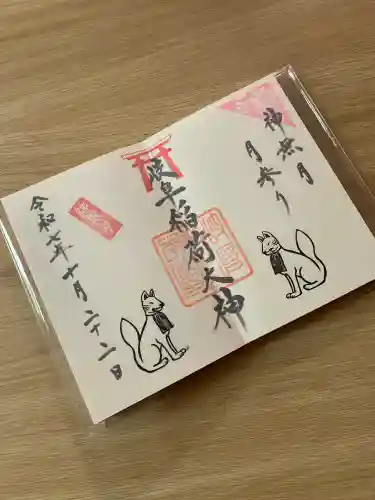 神無月
月参り
岐阜稲荷大神
令和七年十月二十二日